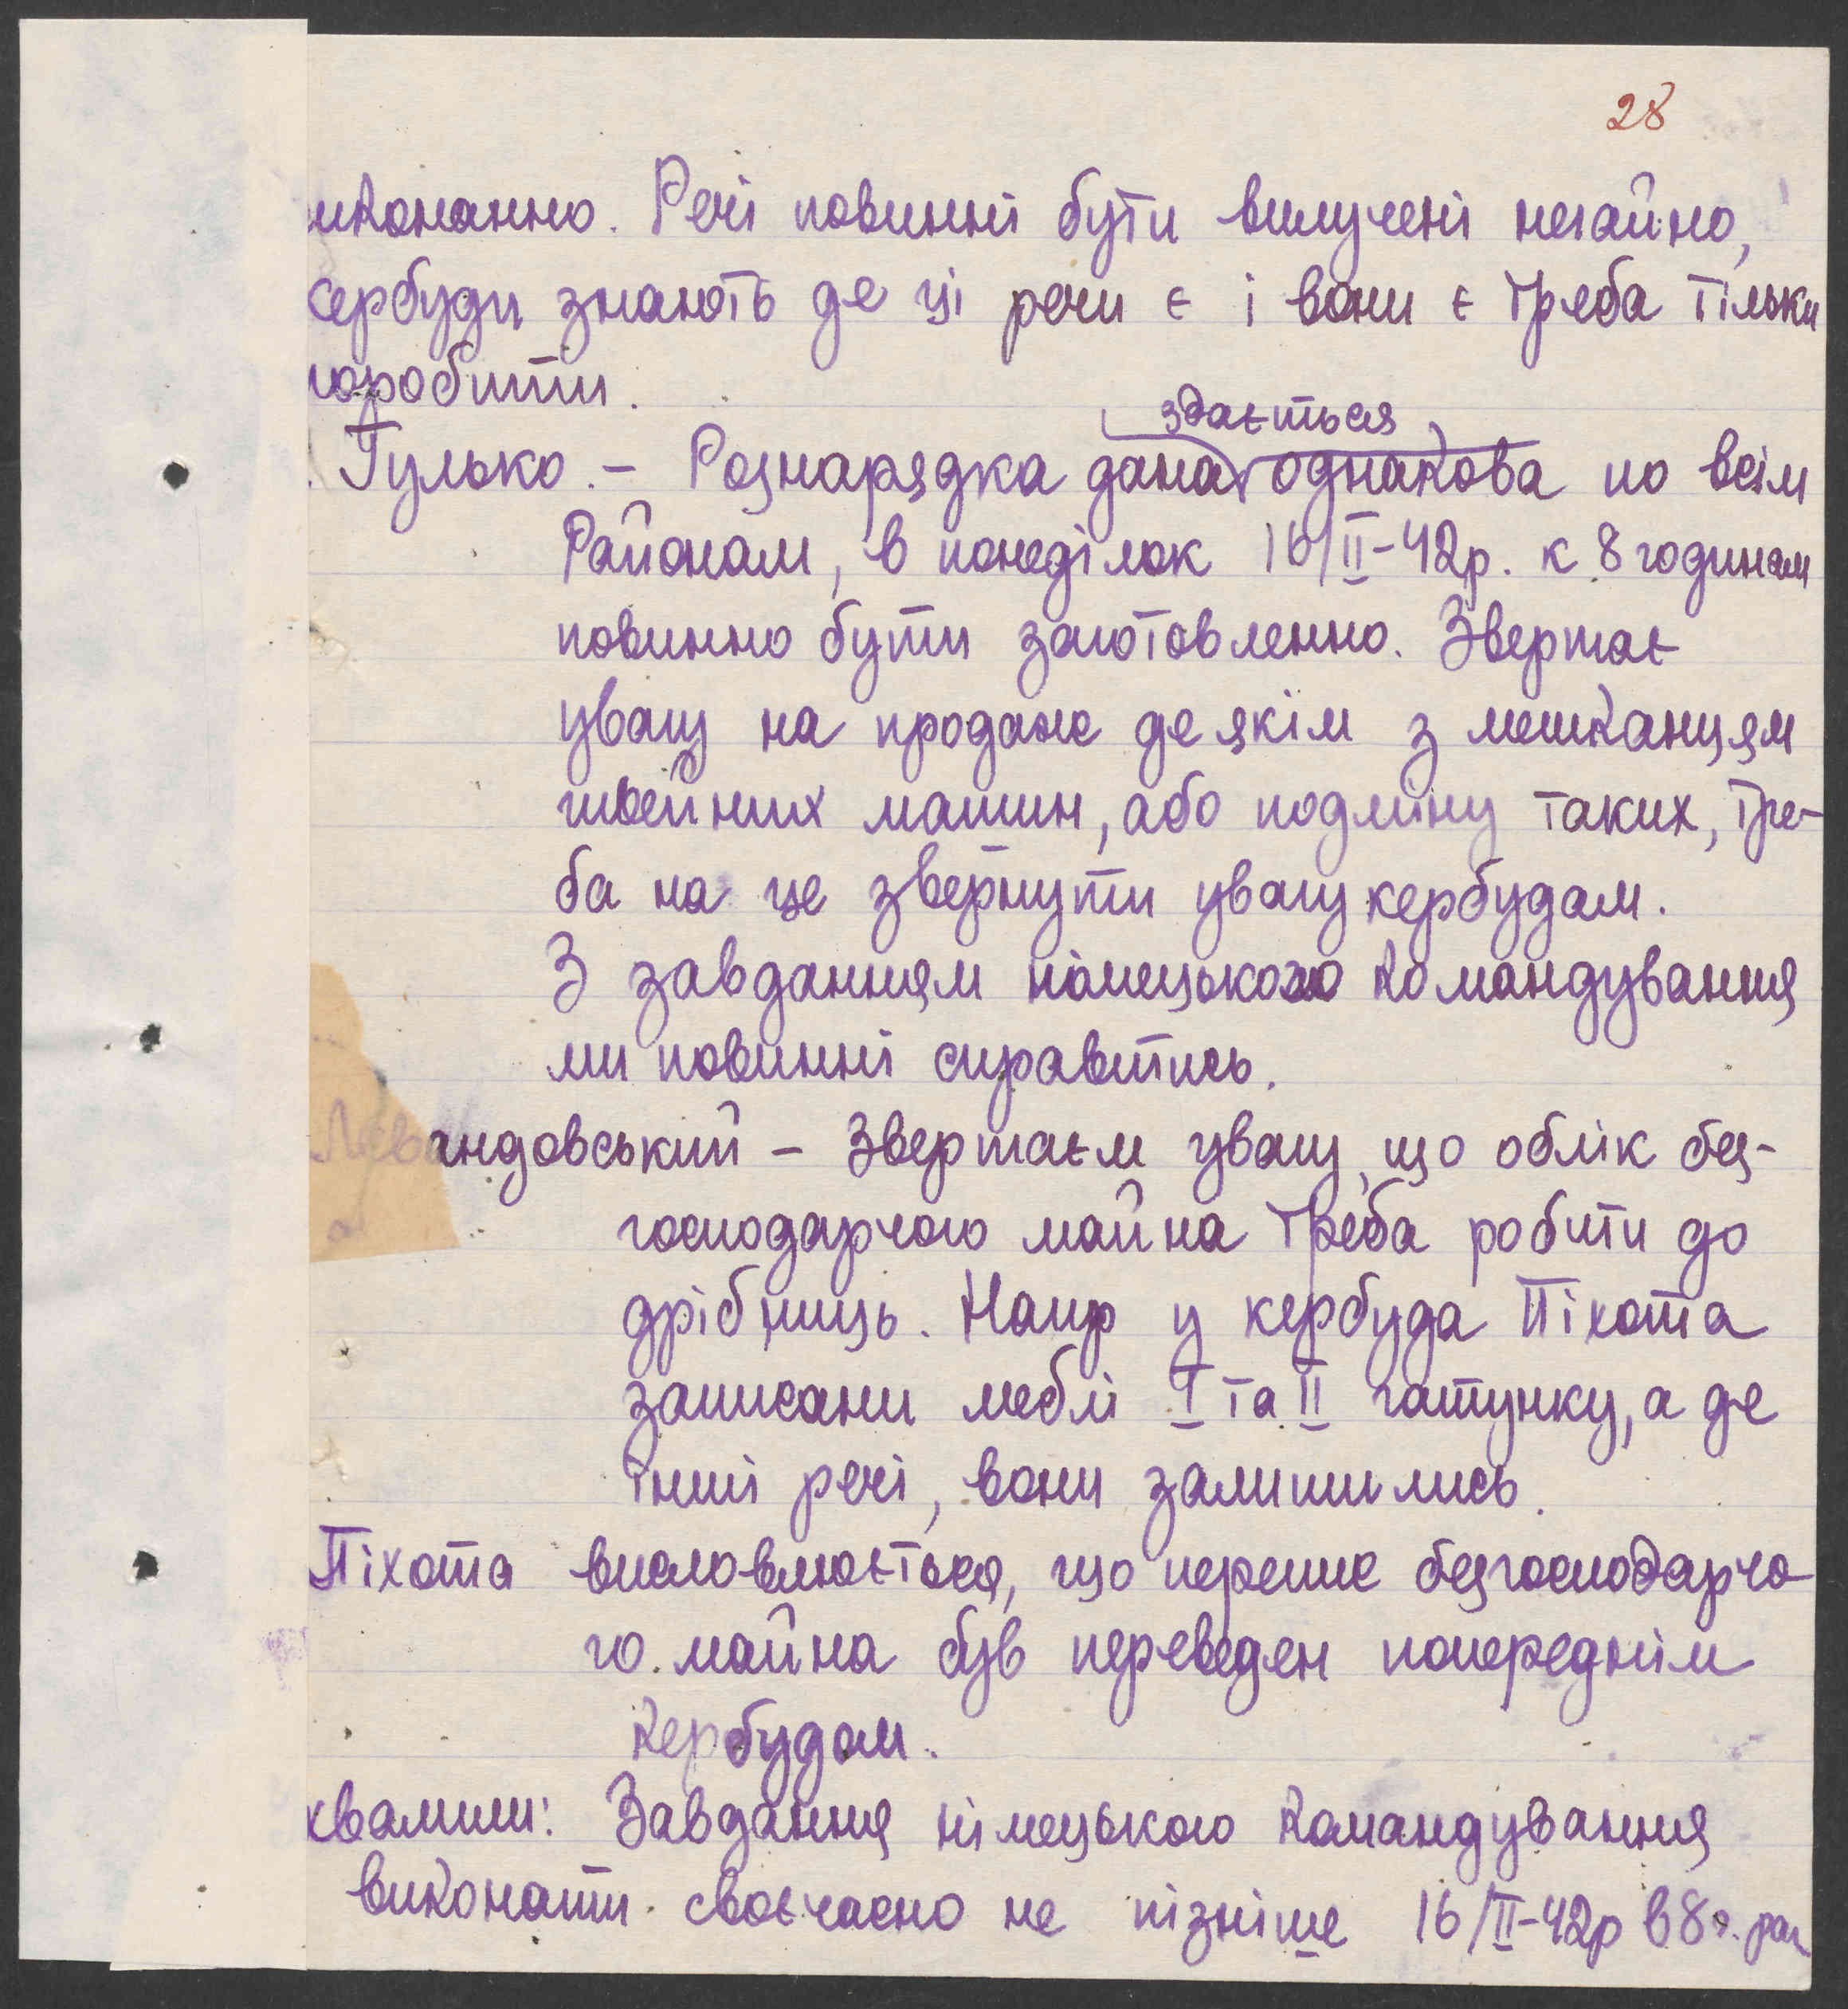 28
иконанню. Речі повинні бути вилучені негайно,
кербуди знають де ці речи є і вони є треба тільки
поробити.
здається
Гулько. – Рознарядка дана однакова по всім
Районам, в понеділок 16/II-42р. к 8 годинам
повинно бути заготовленно. Звертає
увагу на продаж де якім з мешканцям
швейних машин, або подміну таких, тре-
ба на це звернути увагу кербудам.
З завданням німецького командування
ми повинні справитись.
Левандовський – Звертаєм увагу, що облік без-
господарчого майна треба робити до
дрібниць. Напр у кербуда Піхота
записани меблі I та II гатунку, а де
інші речі, вони залишились.
Піхота висловлюється, що перепис безгосподарчо
го майна був переведен попереднім
Кербудом.
хвалили: Завдання німецького командування
виконати своєчасно не пізніше 16/II-42р в 8 г. ран